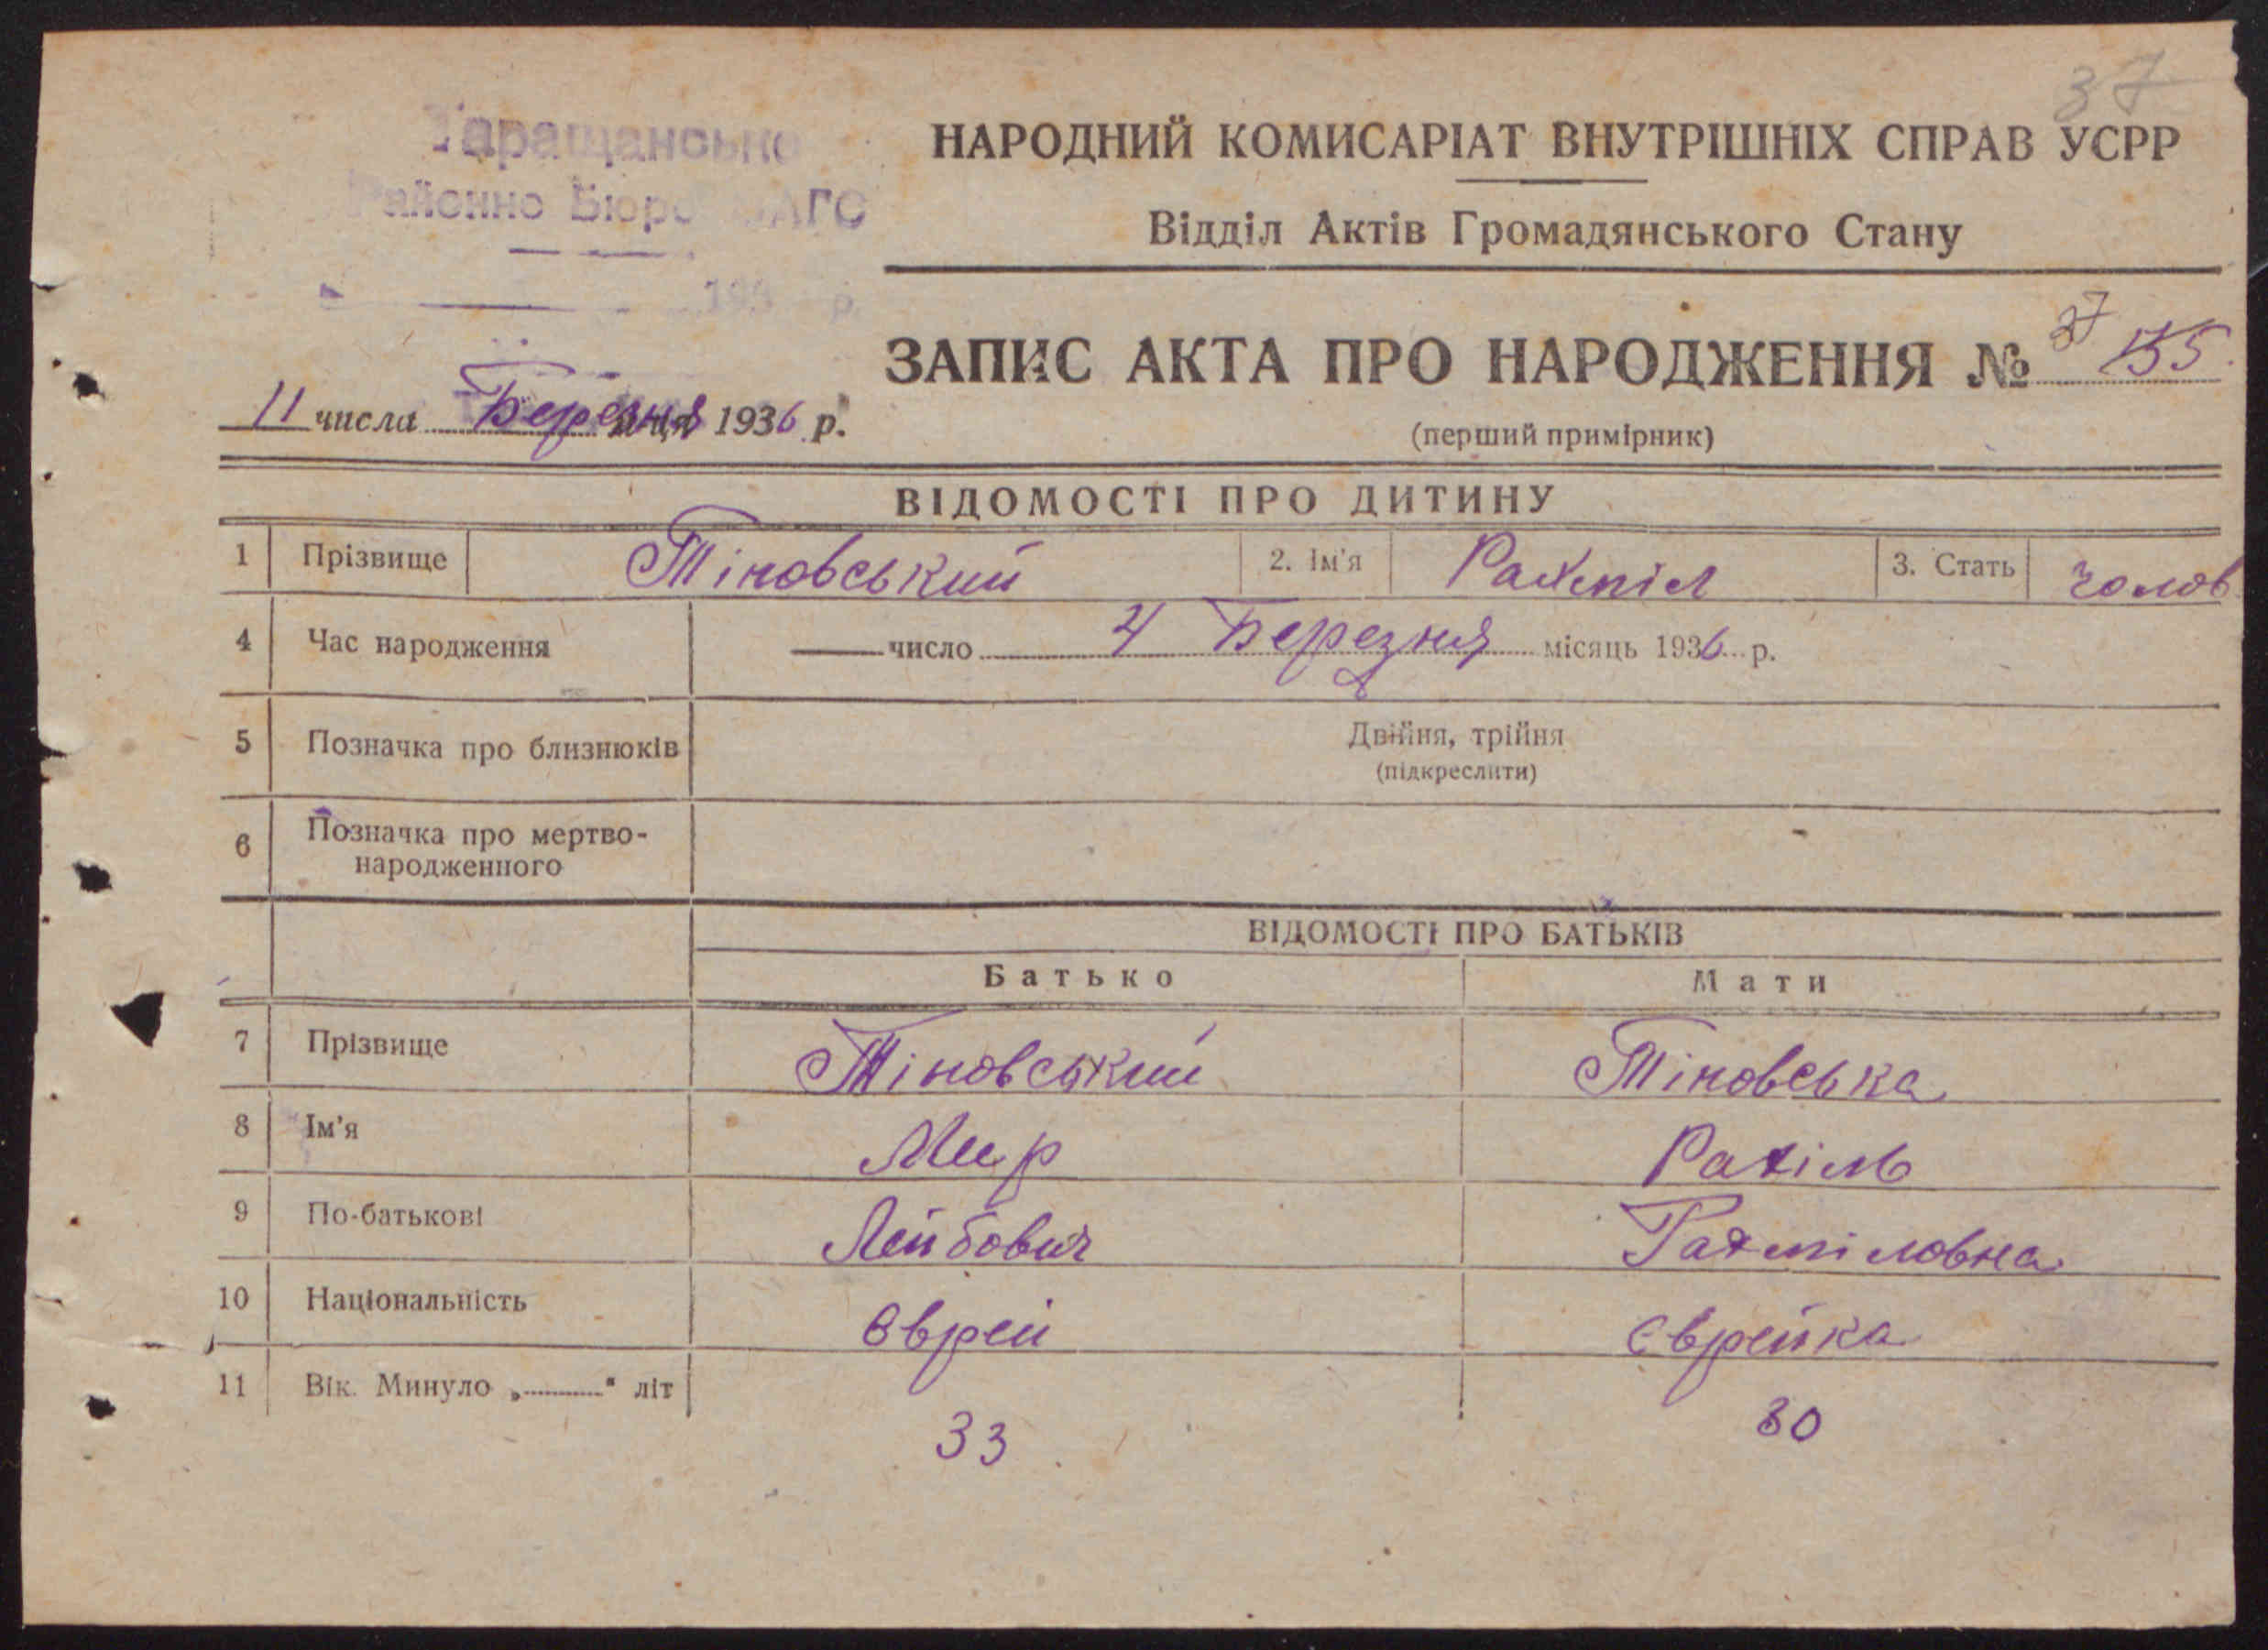 37
Таращанське
НАРОДНИЙ КОМИСАРІАТ ВНУТРІШНІХ СПРАВ УСРР
Районне Бюро ЗАГС
Відділ Актів Громадянського Стану
193 р.
ЗАПИС АКТА ПРО НАРОДЖЕННЯ № 37 155
11 числа Березня м-ця 1936 р.
(перший примірник)
ВІДОМОСТІ ПРО ДИТИНУ
1 Прізвище Тіновський 2. Ім'я Рахміл 3. Стать чолов
4 Час народження число 4 Березня місяць 1936 р.
5 Позначка про близнюків Двійня, трійня
(підкреслити)
6 Позначка про мертво-
народженного
ВІДОМОСТІ ПРО БАТЬКІВ
Батько Мати
7 Прізвище Тіновський Тіновська
8 Ім'я Меер Рахіль
9 По-батькові Лейбович Рахміловна
10 Національність Єврей Єврейка
11 Вік. Минуло „ “ літ
33 30